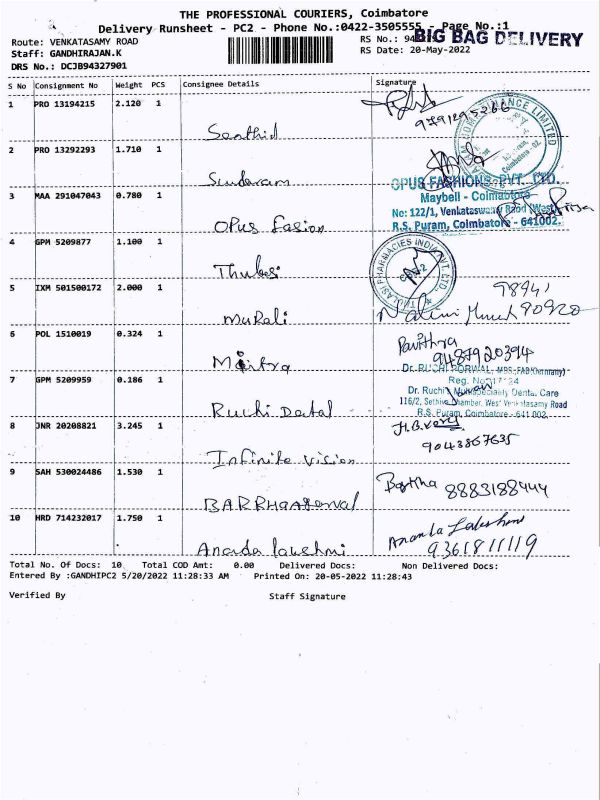 THE PROFESSIONAL COURIERS, Coimbatore
Delivery Runsheet - PC2 - Phone No.:0422-3505555 - Page No.:1
Route: VENKATASAMY ROAD
RS No.: 94
BIG BAG DELIVERY
Staff: GANDHIRAJAN.K
RS Date: 20-May-2022
DRS No.: DCJB94327901
S No Consignment No Weight PCS Consignee Details Signature
1 PRO 13194215 2.120 1
9791295266
Senthil
2 PRO 13292293 1.710 1
Sundaram
OPUS FASHIONS PVT. LTD.
3 MAA 291047043 0.780 1
Maybell - Coimbatore
No: 122/1, Venkataswamy Road (West)
R.S. Puram, Coimbatore - 641002.
OPus fasion
4 GPM 5209877 1.100 1
THULASI PHARMACIES INDIA PVT. LTD.
Thulasi
5 IXM 501500172 2.000 1
98941
90920
MuRali
6 POL 1510019 0.324 1
Pavithra
9487920394
Maitra
Dr. RUCHI PORWAL, MDS. FAD(Germany)
7 GPM 5209959 0.186 1
Dr. Ruchi's Multispeciality Dental Care
116/2, Sethia Chamber, West Venkatasamy Road
R.S. Puram, Coimbatore - 641 002.
Ruchi Dental
8 JNR 20208821 3.245 1
9043867635
Infinite Vision
9 SAH 530024486 1.530 1
8883188444
10 HRD 714232017 1.750 1
Ananda Lakshmi
9361811119
Ananda lakshmi
Total No. Of Docs: 10 Total COD Amt: 0.00 Delivered Docs: Non Delivered Docs:
Entered By :GANDHIPC2 5/20/2022 11:28:33 AM Printed On: 20-05-2022 11:28:43
Verified By Staff Signature